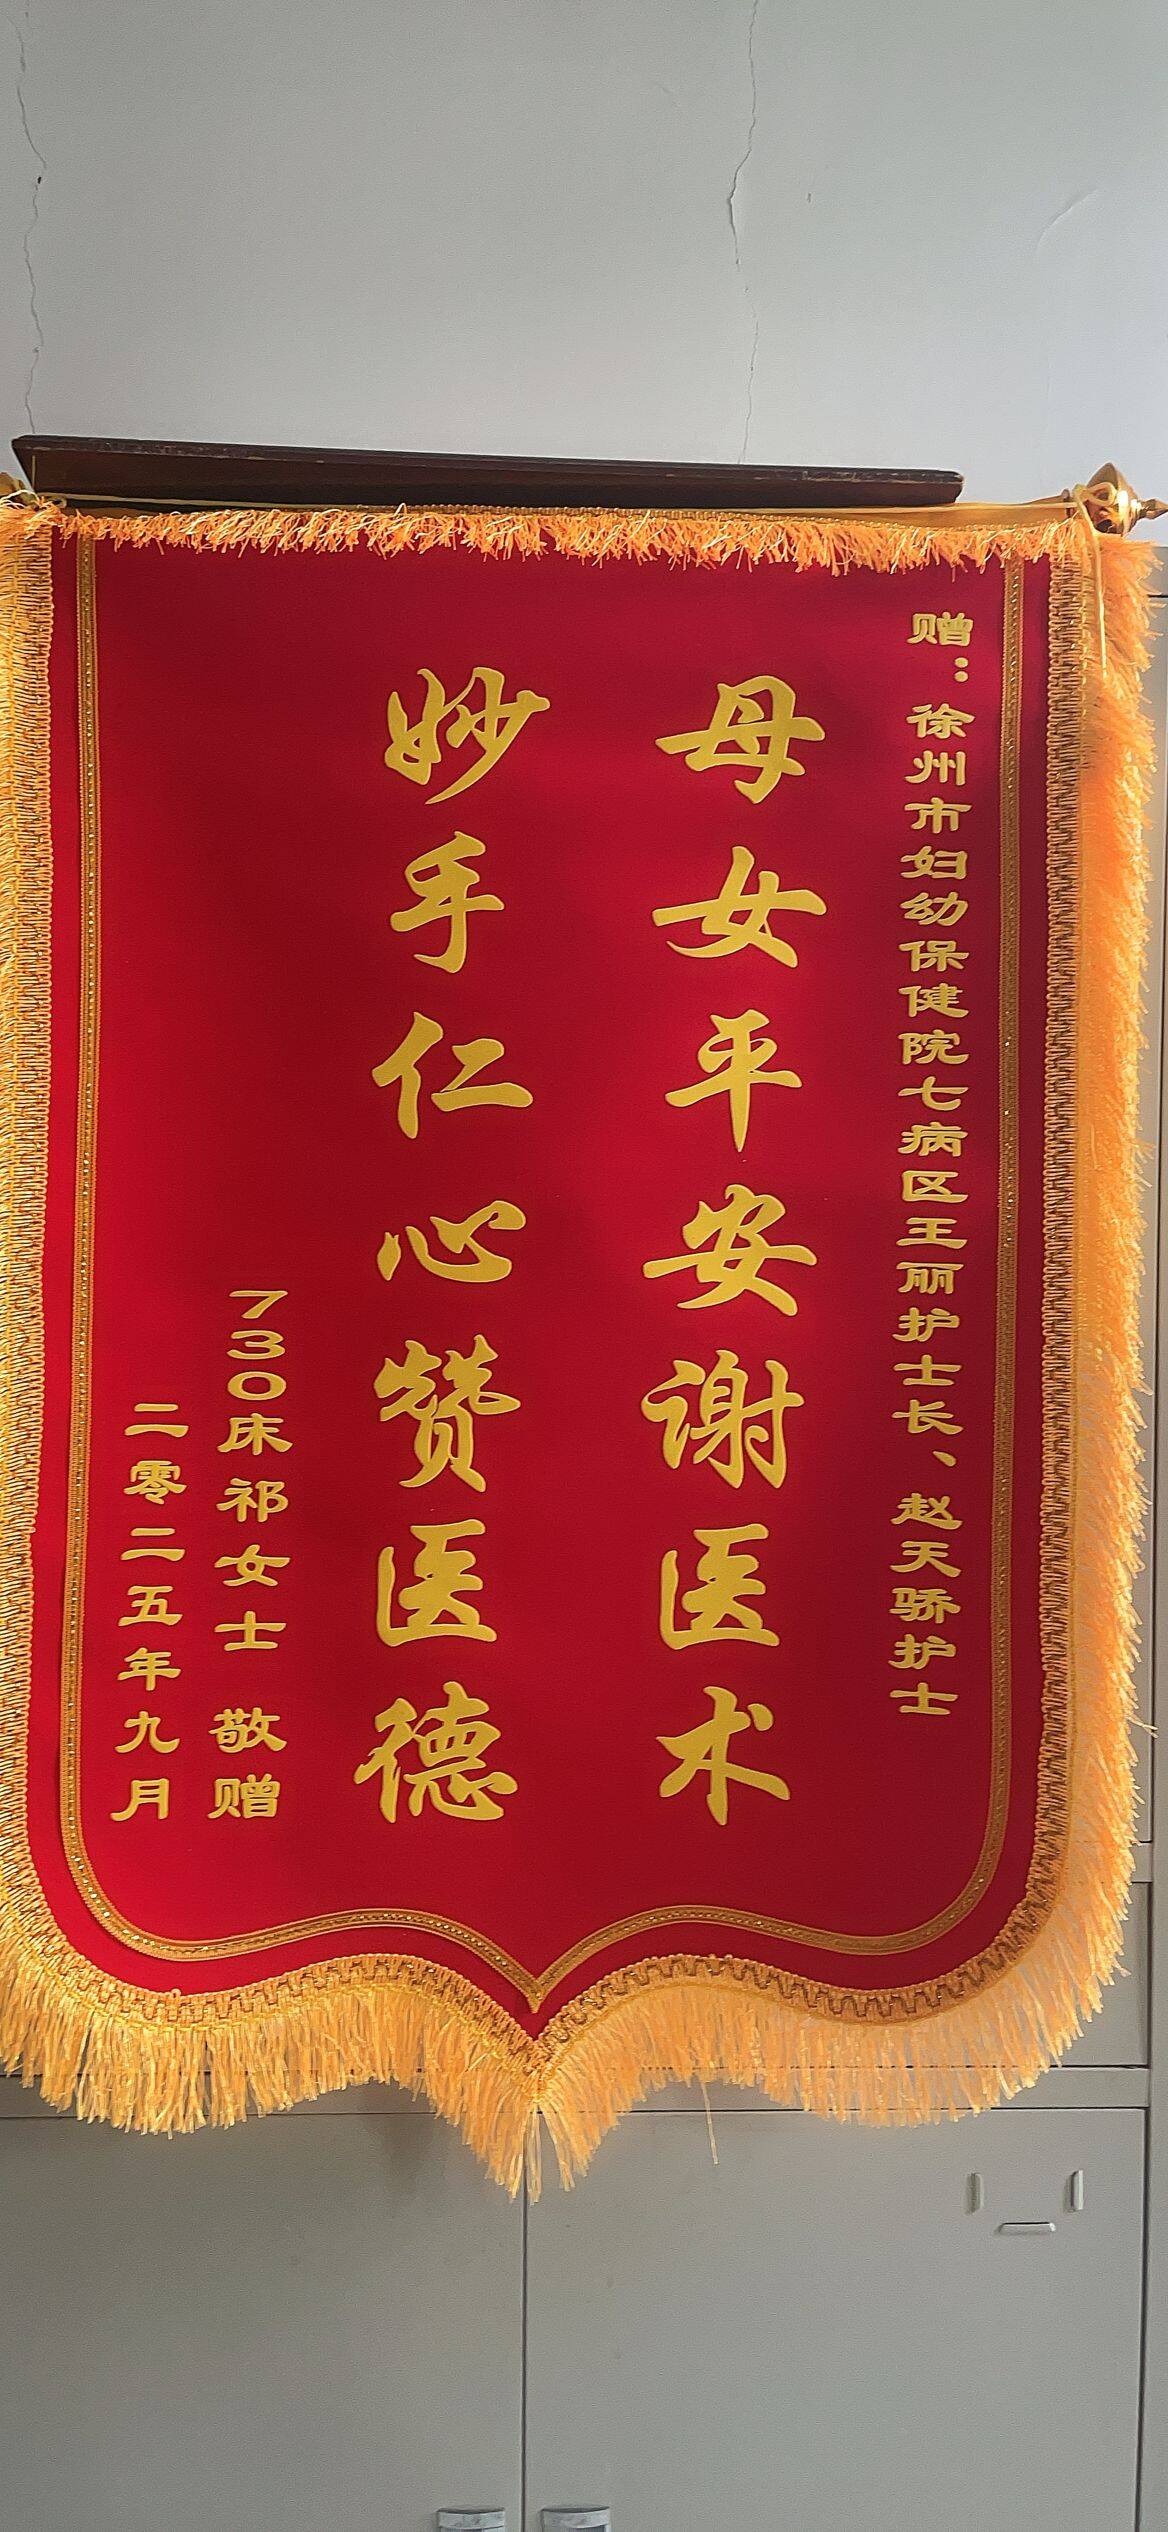 赠：徐州市妇幼保健院七病区王丽护士长、赵天骄护士
母女平安谢医术
妙手仁心赞医德
730床祁女士 敬赠
二零二五年九月